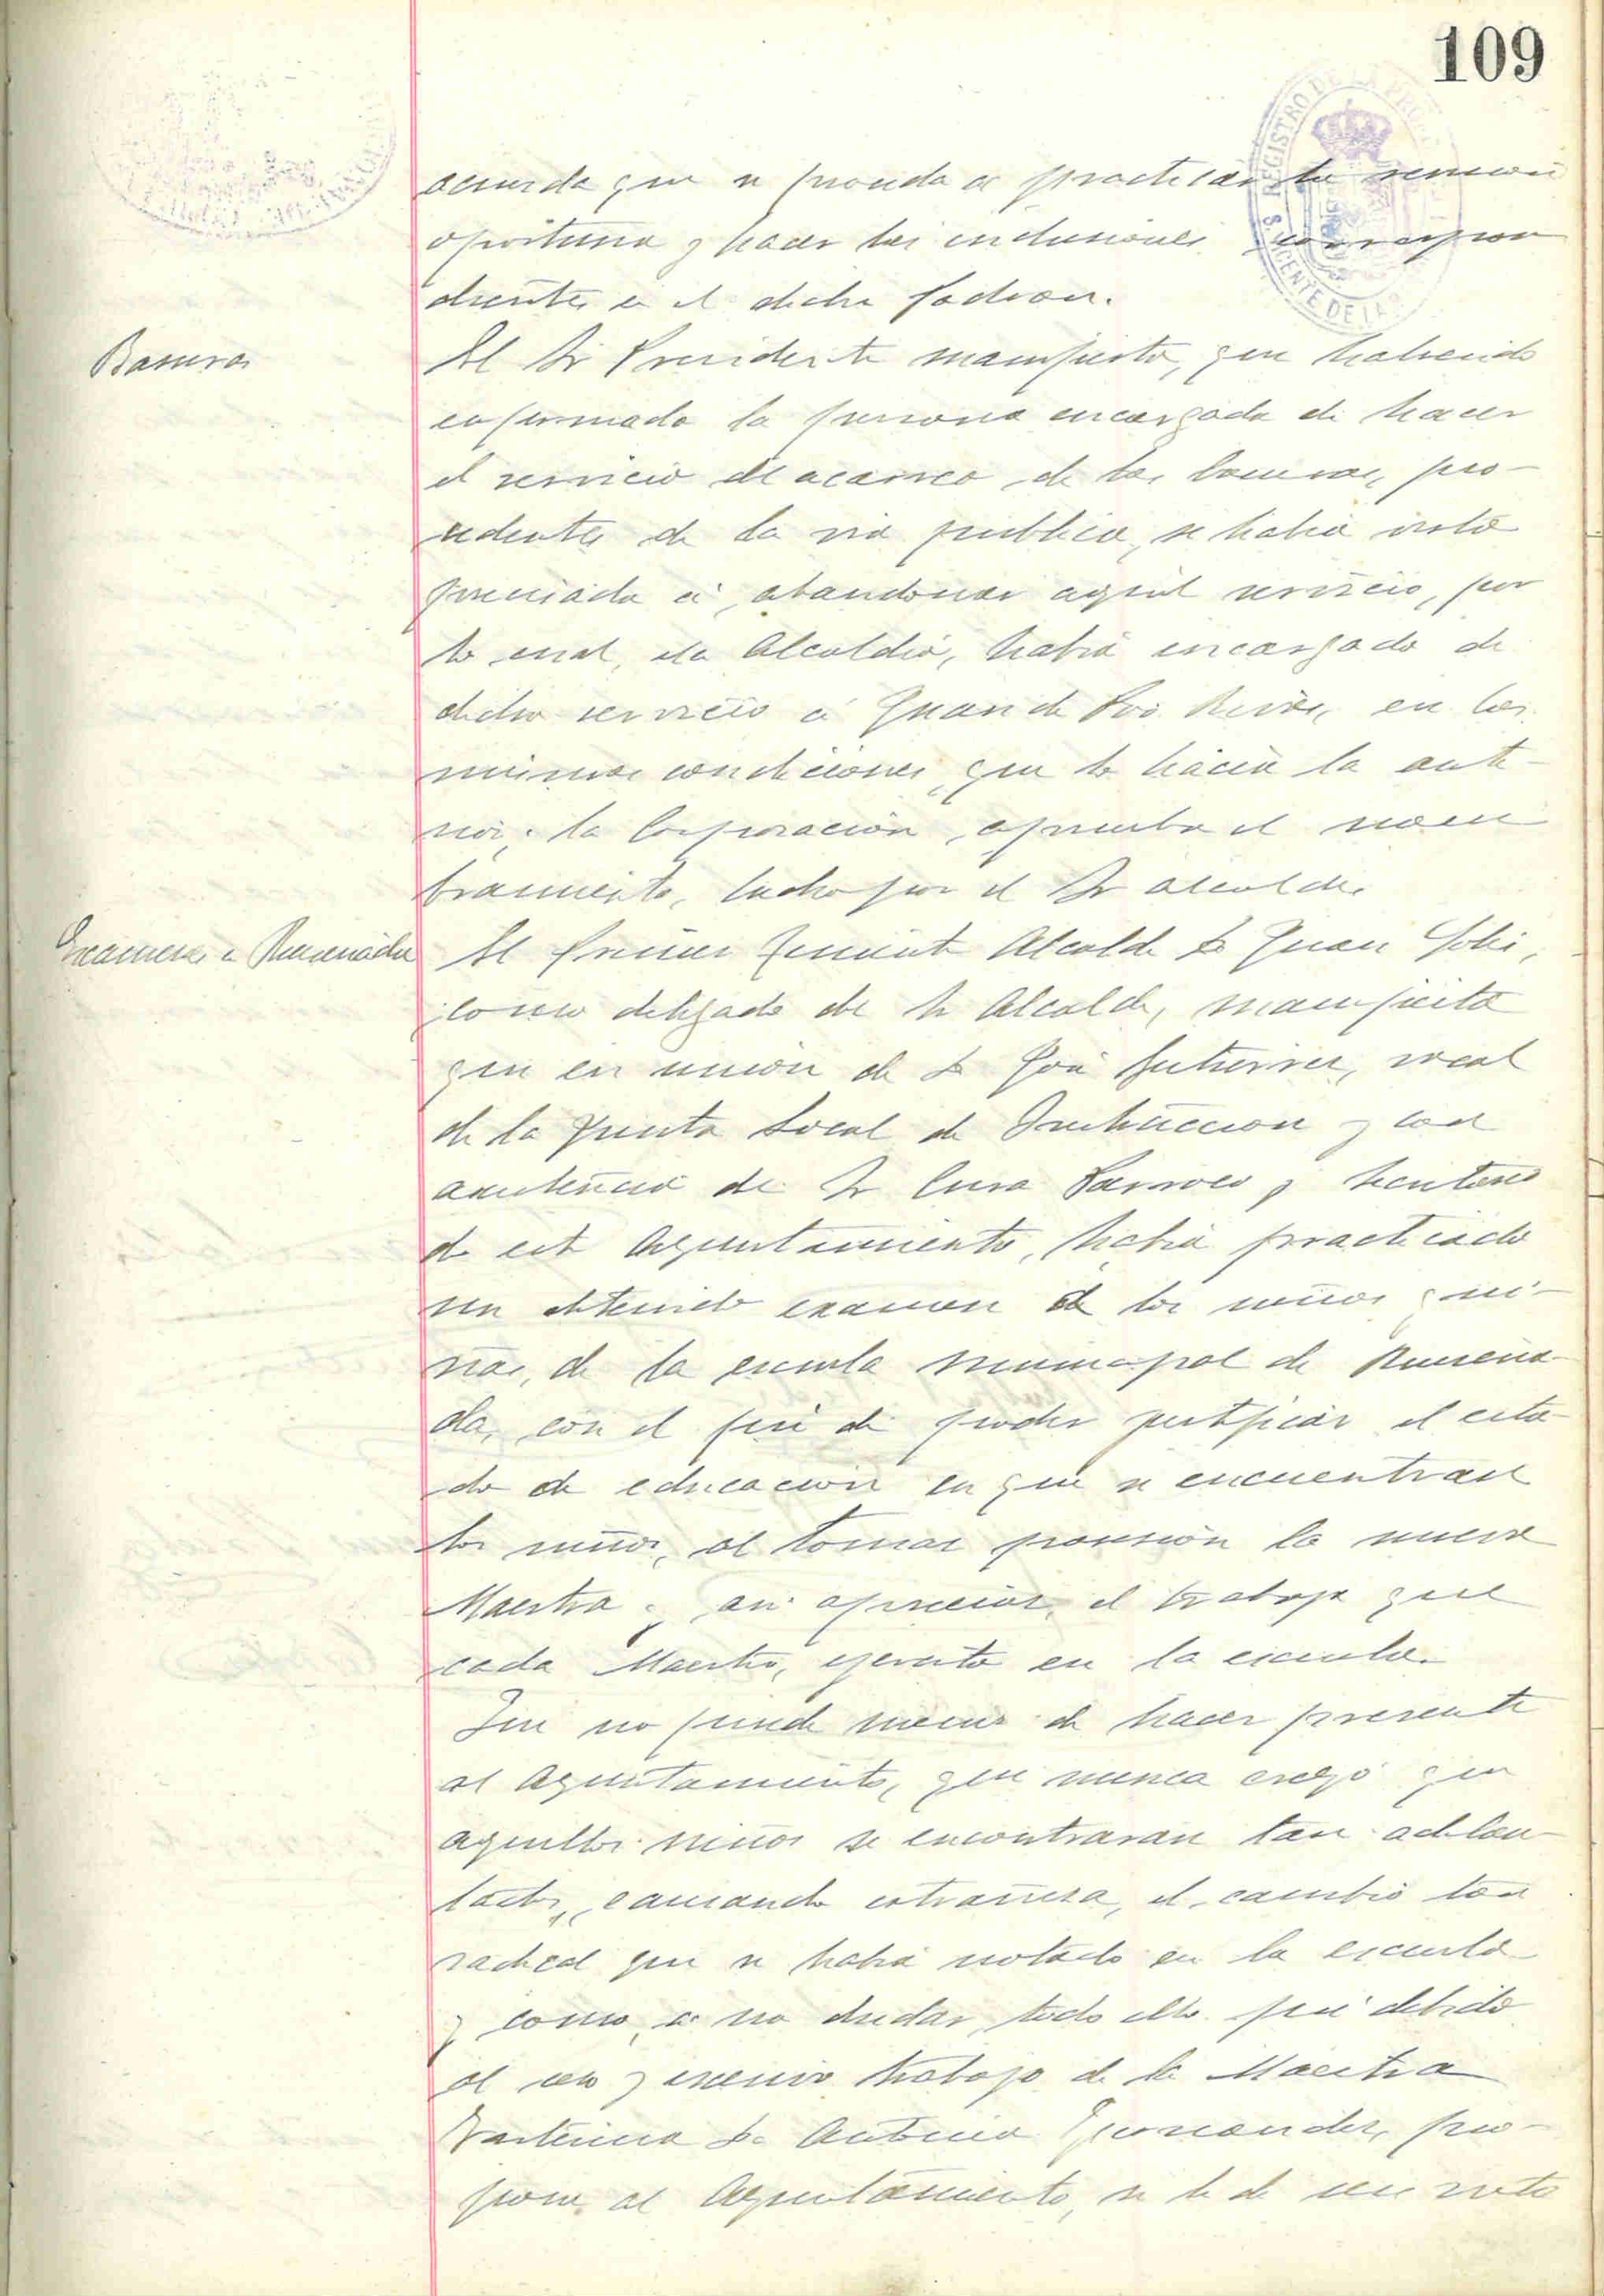 109
acuerda que se proceda a practicar la revision
oportuna y hacer las inclusiones correspon
dientes en el dicho padron.
Basuras
El Sr Presidente manifiesta, que habiendo
enfermado la persona encargada de hacer
el servicio de acarreo de las basuras, pro-
cedentes de la via publica, se habia visto
precisada á abandonar aquel servicio, por
lo cual, esta Alcaldia, habia encargado de
dicho servicio á Juan de Dios Rivas, en las
mismas condiciones, que lo hacia la ante-
rior. la Corporación, aprueba el nom
bramiento, hecho por el Sr alcalde.
Examenes en Revenada
El primer teniente Alcalde D Juan
como delegado del Sr Alcalde, manifiesta
que en union de D José Gutierrez, vocal
de la Junta Local de Instruccion y con
asistencia del Sr Cura Parroco y Secretario
de este Ayuntamiento, habia practicado
un detenido examen de los niños y ni-
ñas, de la escuela municipal de
da, con el fin de poder justificar el esta-
do de educacion en que se encuentran
los niños, al tomar posesión la nueva
Maestra y asi apreciar, el trabajo que
cada Maestro, ejercita en la escuela.
Que no puede menos de hacer presente
al Ayuntamiento, que nunca creyó que
aquellos niños se encontraran tan adelan-
tados, causando estrañeza, el cambio tan
radical que se habia notado en la escuela
y como, a no dudar, todo ello fué debido
al celo y inmenso trabajo de la Maestra
interina Dª Antonia Fernandez, pro-
pone al Ayuntamiento, se le dé un voto